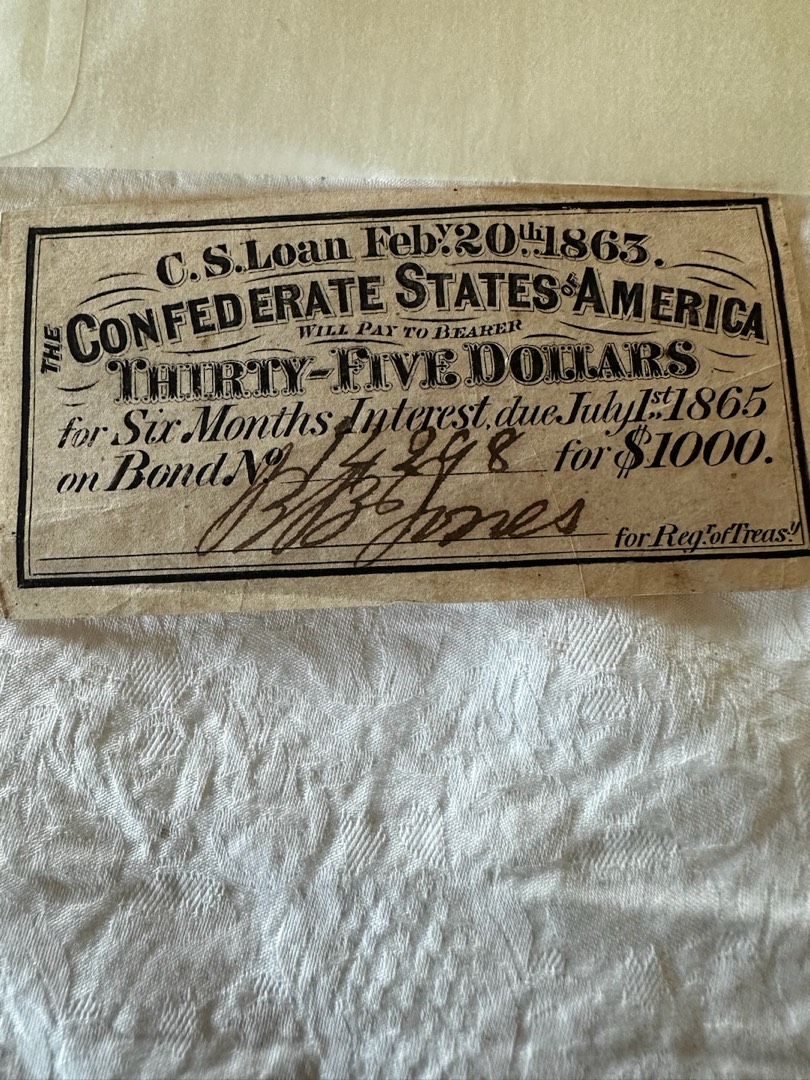 C. S. Loan Feby. 20th 1863.
THE CONFEDERATE STATES OF AMERICA
WILL PAY TO BEARER
THIRTY-FIVE DOLLARS
for Six Months Interest, due July 1st 1865
on Bond No 14298 for $1000.
R B Jones for Regr. of Treasy